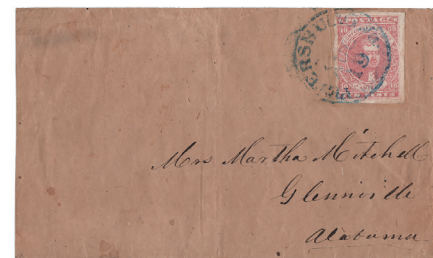 POSTAGE
Mrs Martha Mitchell
Glennville
Alabama